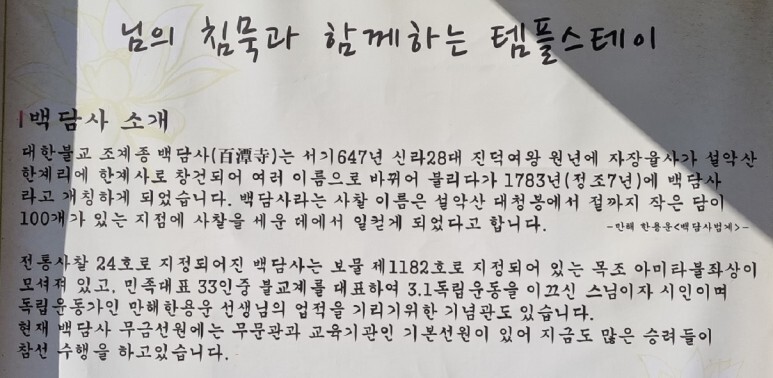 님의 침묵과 함께하는 템플스테이
백담사 소개
대한불교 조계종 백담사(百潭寺)는 서기647년 신라28대 진덕여왕 원년에 자장율사가 설악산
한계리에 한계사로 창건되어 여러 이름으로 바뀌어 불리다가 1783년(정조7년)에 백담사
라고 개칭하게 되었습니다. 백담사라는 사찰 이름은 설악산 대청봉에서 절까지 작은 담이
100개가 있는 지점에 사찰을 세운 데에서 일컫게 되었다고 합니다.
-만해 한용운<백담사법계>-
전통사찰 24호로 지정되어진 백담사는 보물 제1182호로 지정되어 있는 목조 아미타불좌상이
모셔져 있고, 민족대표 33인중 불교계를 대표하여 3.1독립운동을 이끄신 스님이자 시인이며
독립운동가인 만해한용운 선생님의 업적을 기리기위한 기념관도 있습니다.
현재 백담사 무금선원에는 무문관과 교육기관인 기본선원이 있어 지금도 많은 승려들이
참선 수행을 하고있습니다.